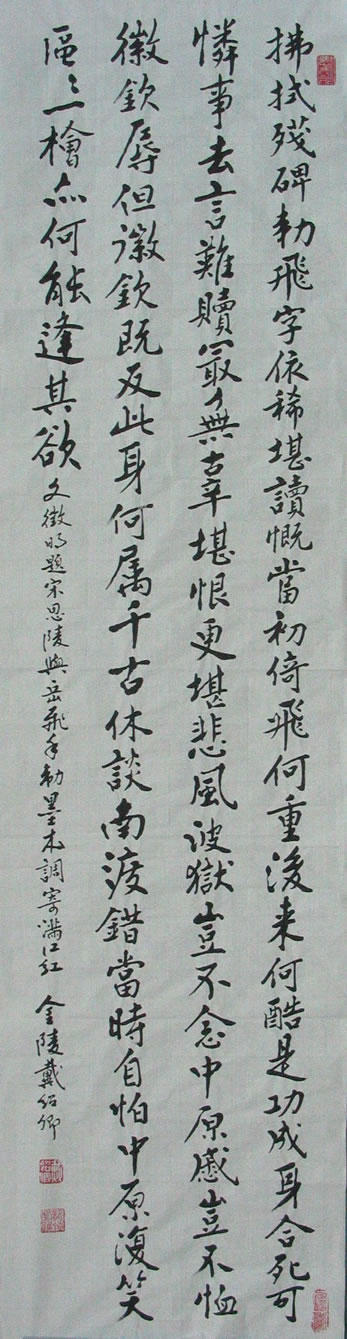 拂拭殘碑勅飛字依稀堪讀慨當初倚飛何重後来何酷是功成身合死可
憐事去言難贖冣無辜堪恨更堪悲風波獄豈不念中原慼豈不恤
徽欽辱但徽欽既反此身何属千古休談南渡錯當時自怕中原復笑
區々一檜亦何能逢其欲
文徵明題宋思陵與岳飛手勅墨本調寄滿江红 金陵戴紹卿